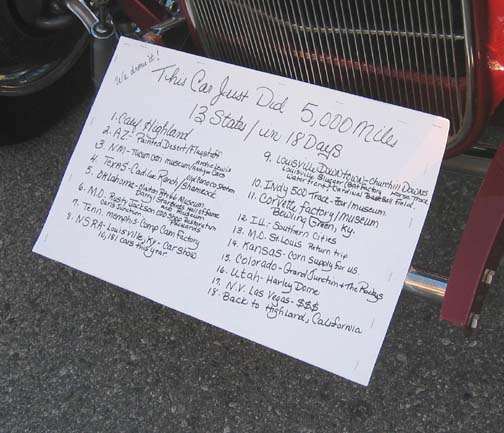 We drove it!
This Car Just Did 5,000 Miles
13 States / in 18 Days
1. Cal
2. AZ - Painted Desert / Flagstaff
3. N.M. - Tucumcari museum /
4. Texas - Cadillac Ranch / Shamrock
5. Oklahoma - Clinton Rt 66 Museum
6. M.O. Rusty Jackson
7. Tenn. Memphis - Comp Cam Factory
8. NSRA - Louisville, Ky - Car show
10,181 cars this year
9. Louisville Downtown - Churchill Downs
Louisville Slugger / Bat Factory
Water front / Cardinal Baseball Field.
10. Indy 500 - Track - Tour / museum
11. Corvette Factory / Museum
Bowling Green, Ky.
12. I.L. - Southern Cities
13. M.O. St. Louis Return trip
14. Kansas - Corn supply for US.
15. Colorado - Grand Junction + The Rockys
16. Utah - Harley Dome
17. N.V. Las Vegas - $$$
18. Back to Highland, California